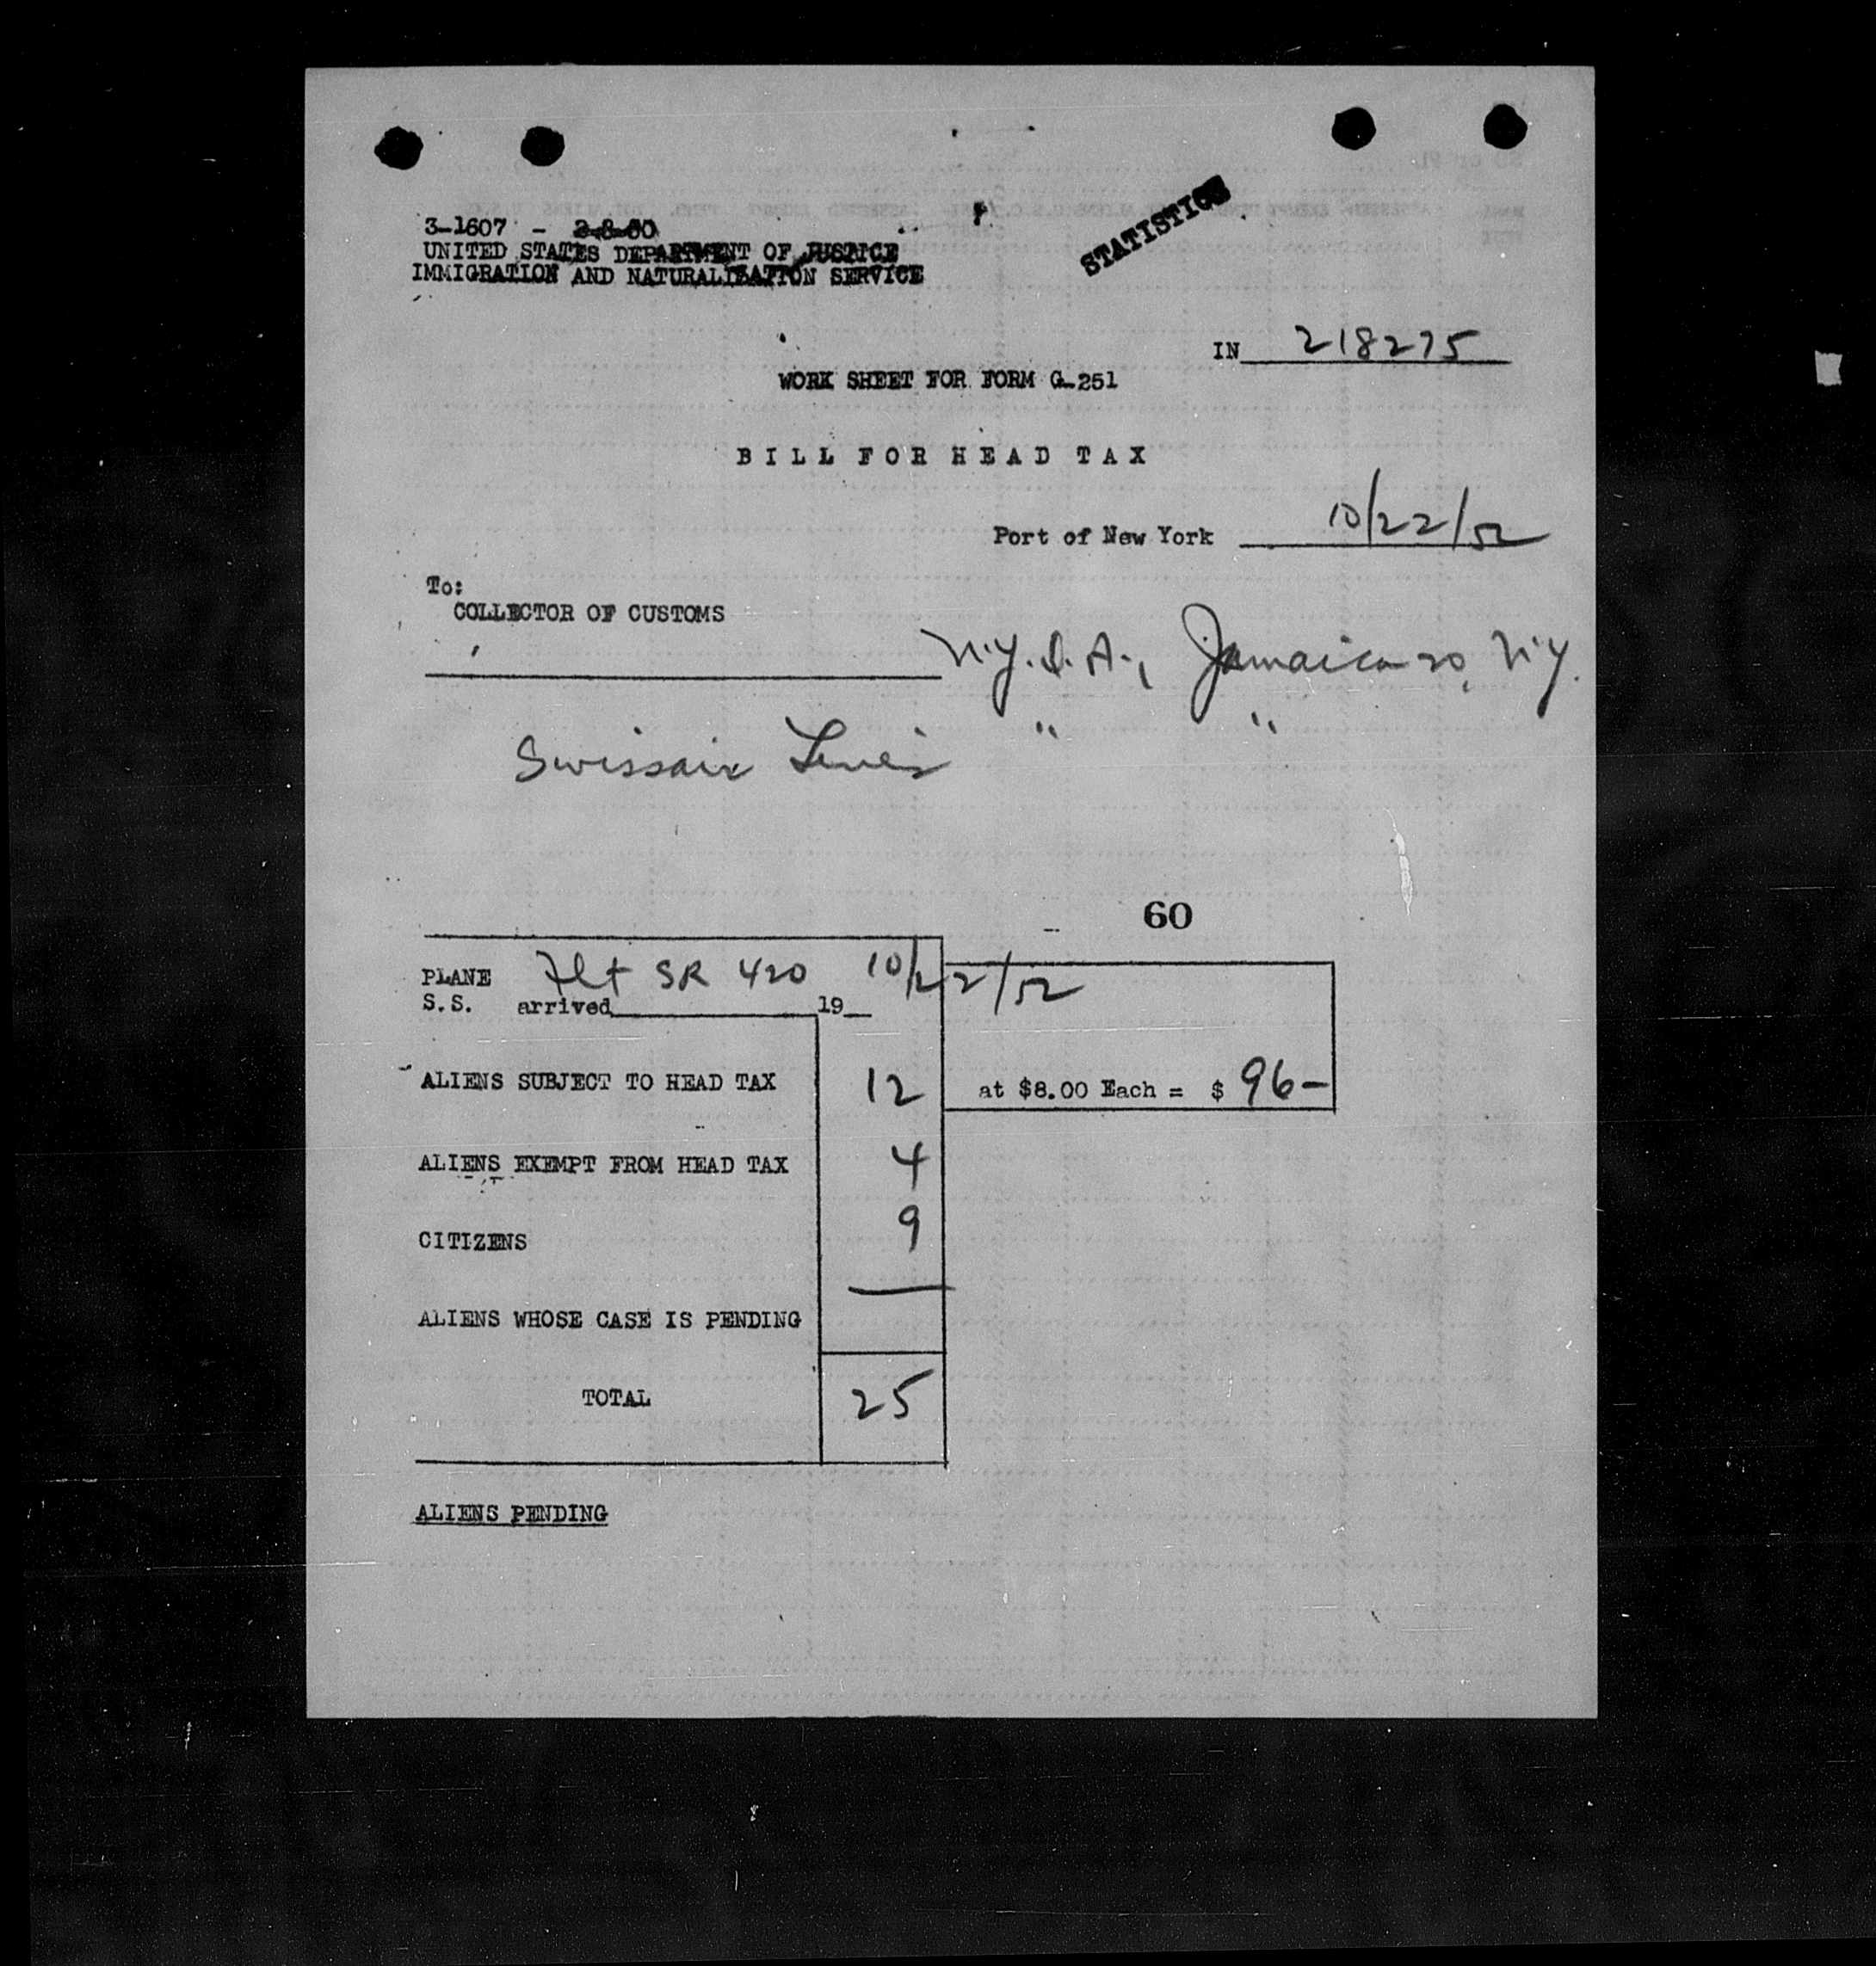 STATISTICS
3-1607 - 2-8-60
UNITED STATES DEPARTMENT OF JUSTICE
IMMIGRATION AND NATURALIZATION SERVICE
IN 218275
WORK SHEET FOR FORM G-251
BILL FOR HEAD TAX
Port of New York 10/22/52
To:
COLLECTOR OF CUSTOMS
N.Y.I.A., Jamaica 20, N.Y.
Swissair Lines " "
60
PLANE Flt SR 420 10/22/52
S.S. arrived 19
ALIENS SUBJECT TO HEAD TAX 12 at $8.00 Each = $ 96-
ALIENS EXEMPT FROM HEAD TAX 4
CITIZENS 9
ALIENS WHOSE CASE IS PENDING
TOTAL 25
ALIENS PENDING